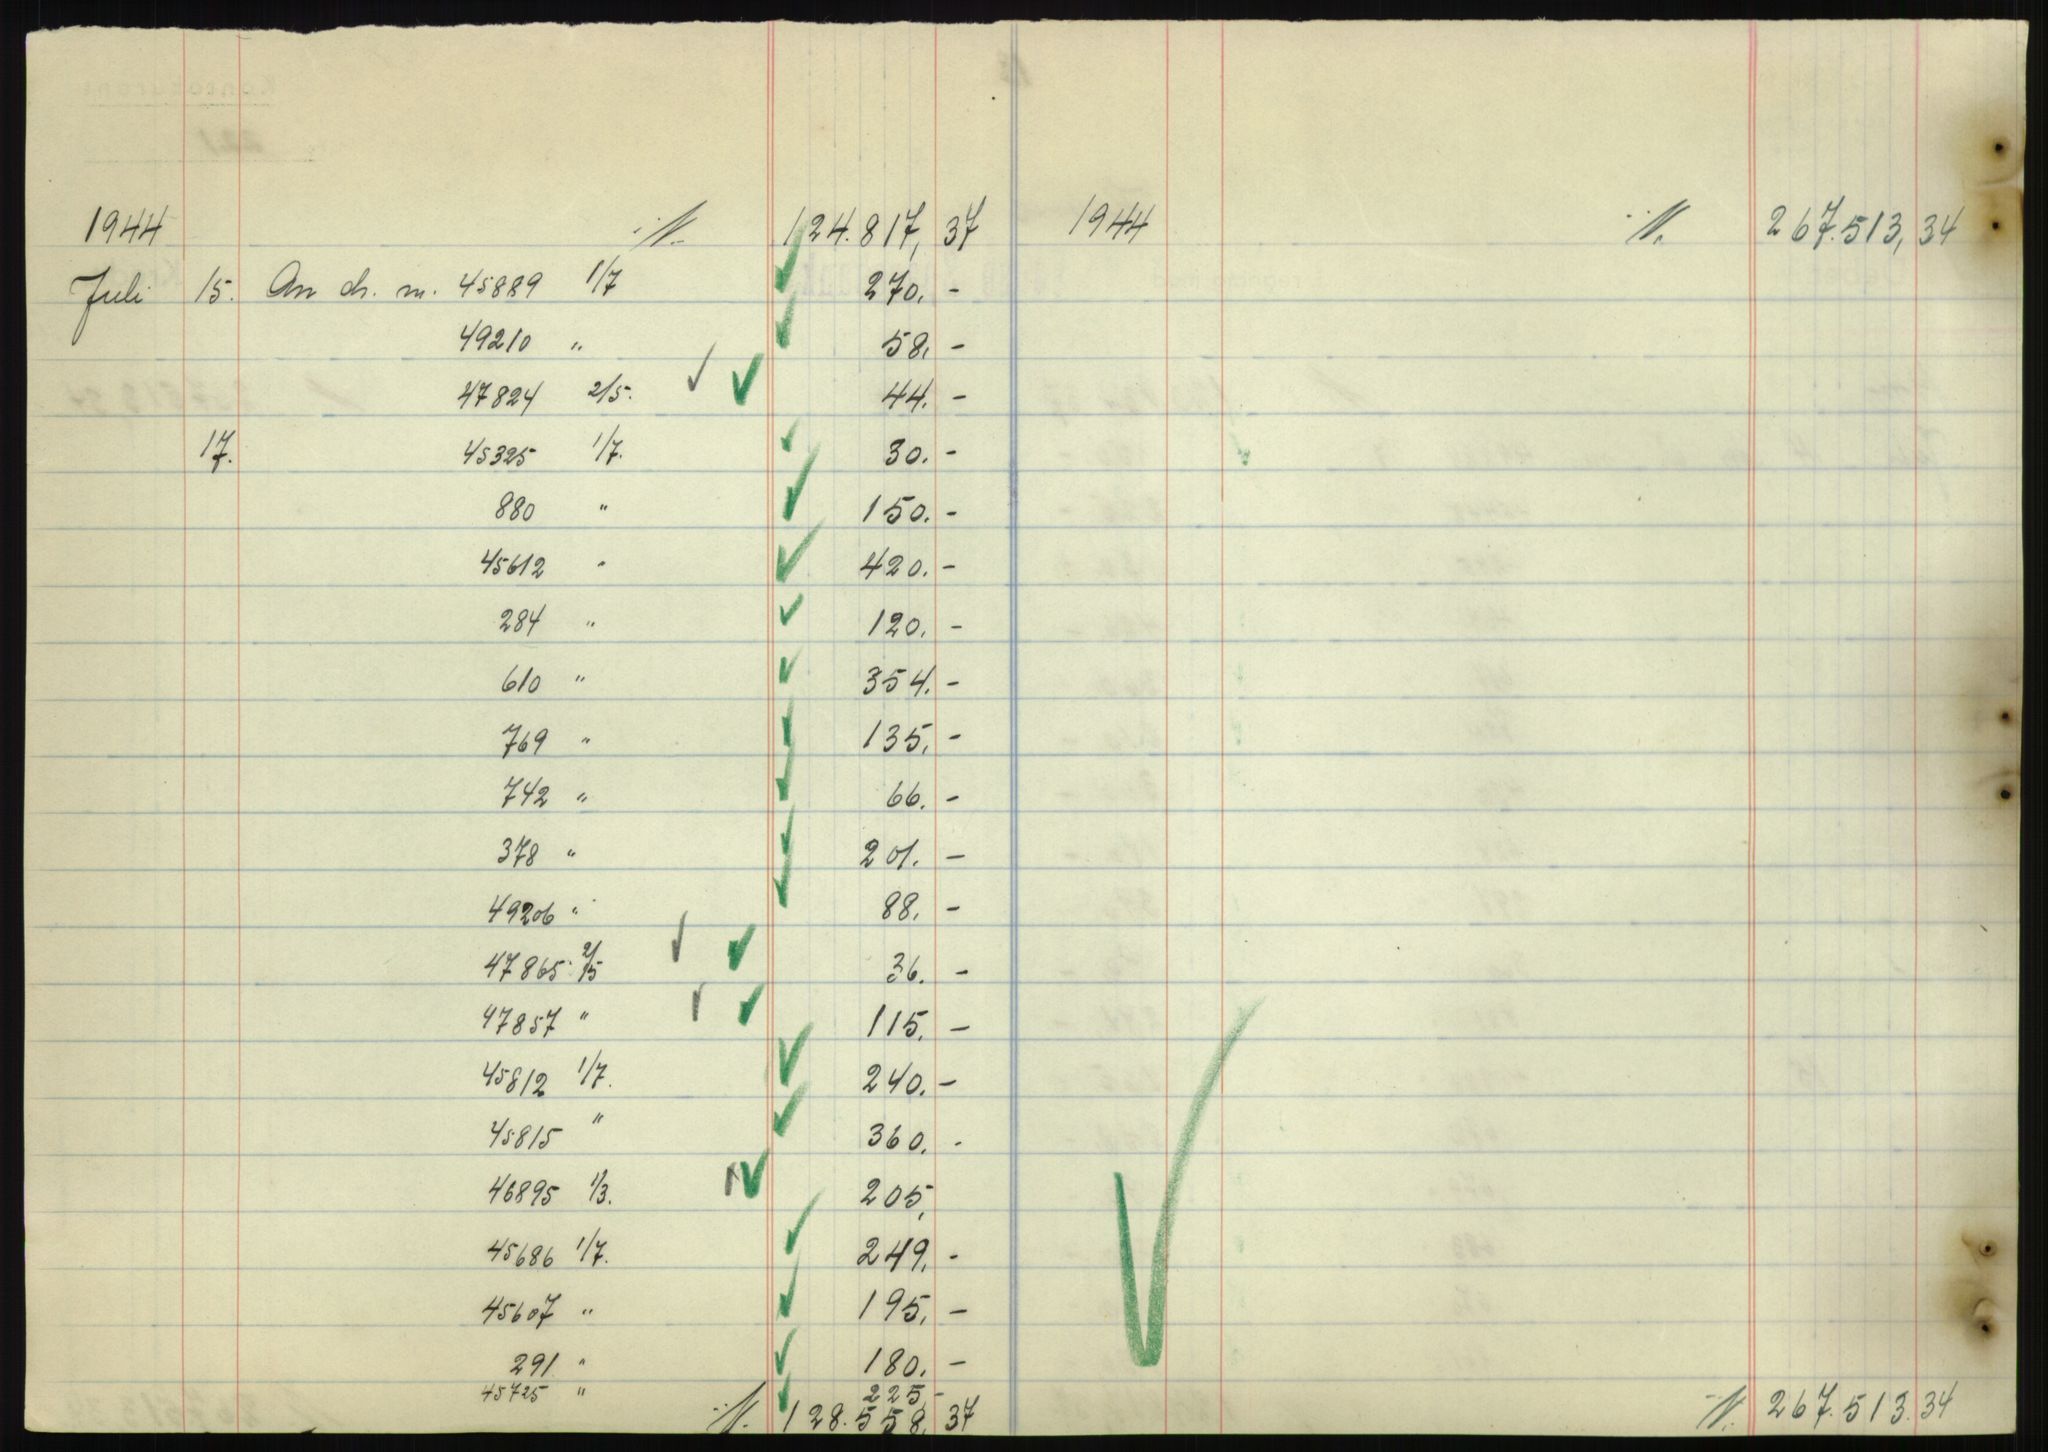 1944 ·/. 124.817,37
Juli 15. An ch. m. 45889 1/7 270.-
49210 " 58.-
47824 2/5. 44.-
17. 45325 1/7. 30.-
880 " 150.-
45612 " 420.-
284 " 120.-
610 " 354.-
769 " 135.-
742 " 66.-
378 " 201.-
49206 " 88.-
47865 2/5 36.-
47857 " 115.-
45812 1/7. 240.-
45815 " 360.-
46895 1/3. 205,
45686 1/7. 249.-
45607 " 195.-
291 " 180.-
45725 " 225,-
·/. 128.558,37
1944 ·/. 267.513,34
·/. 267.513.34